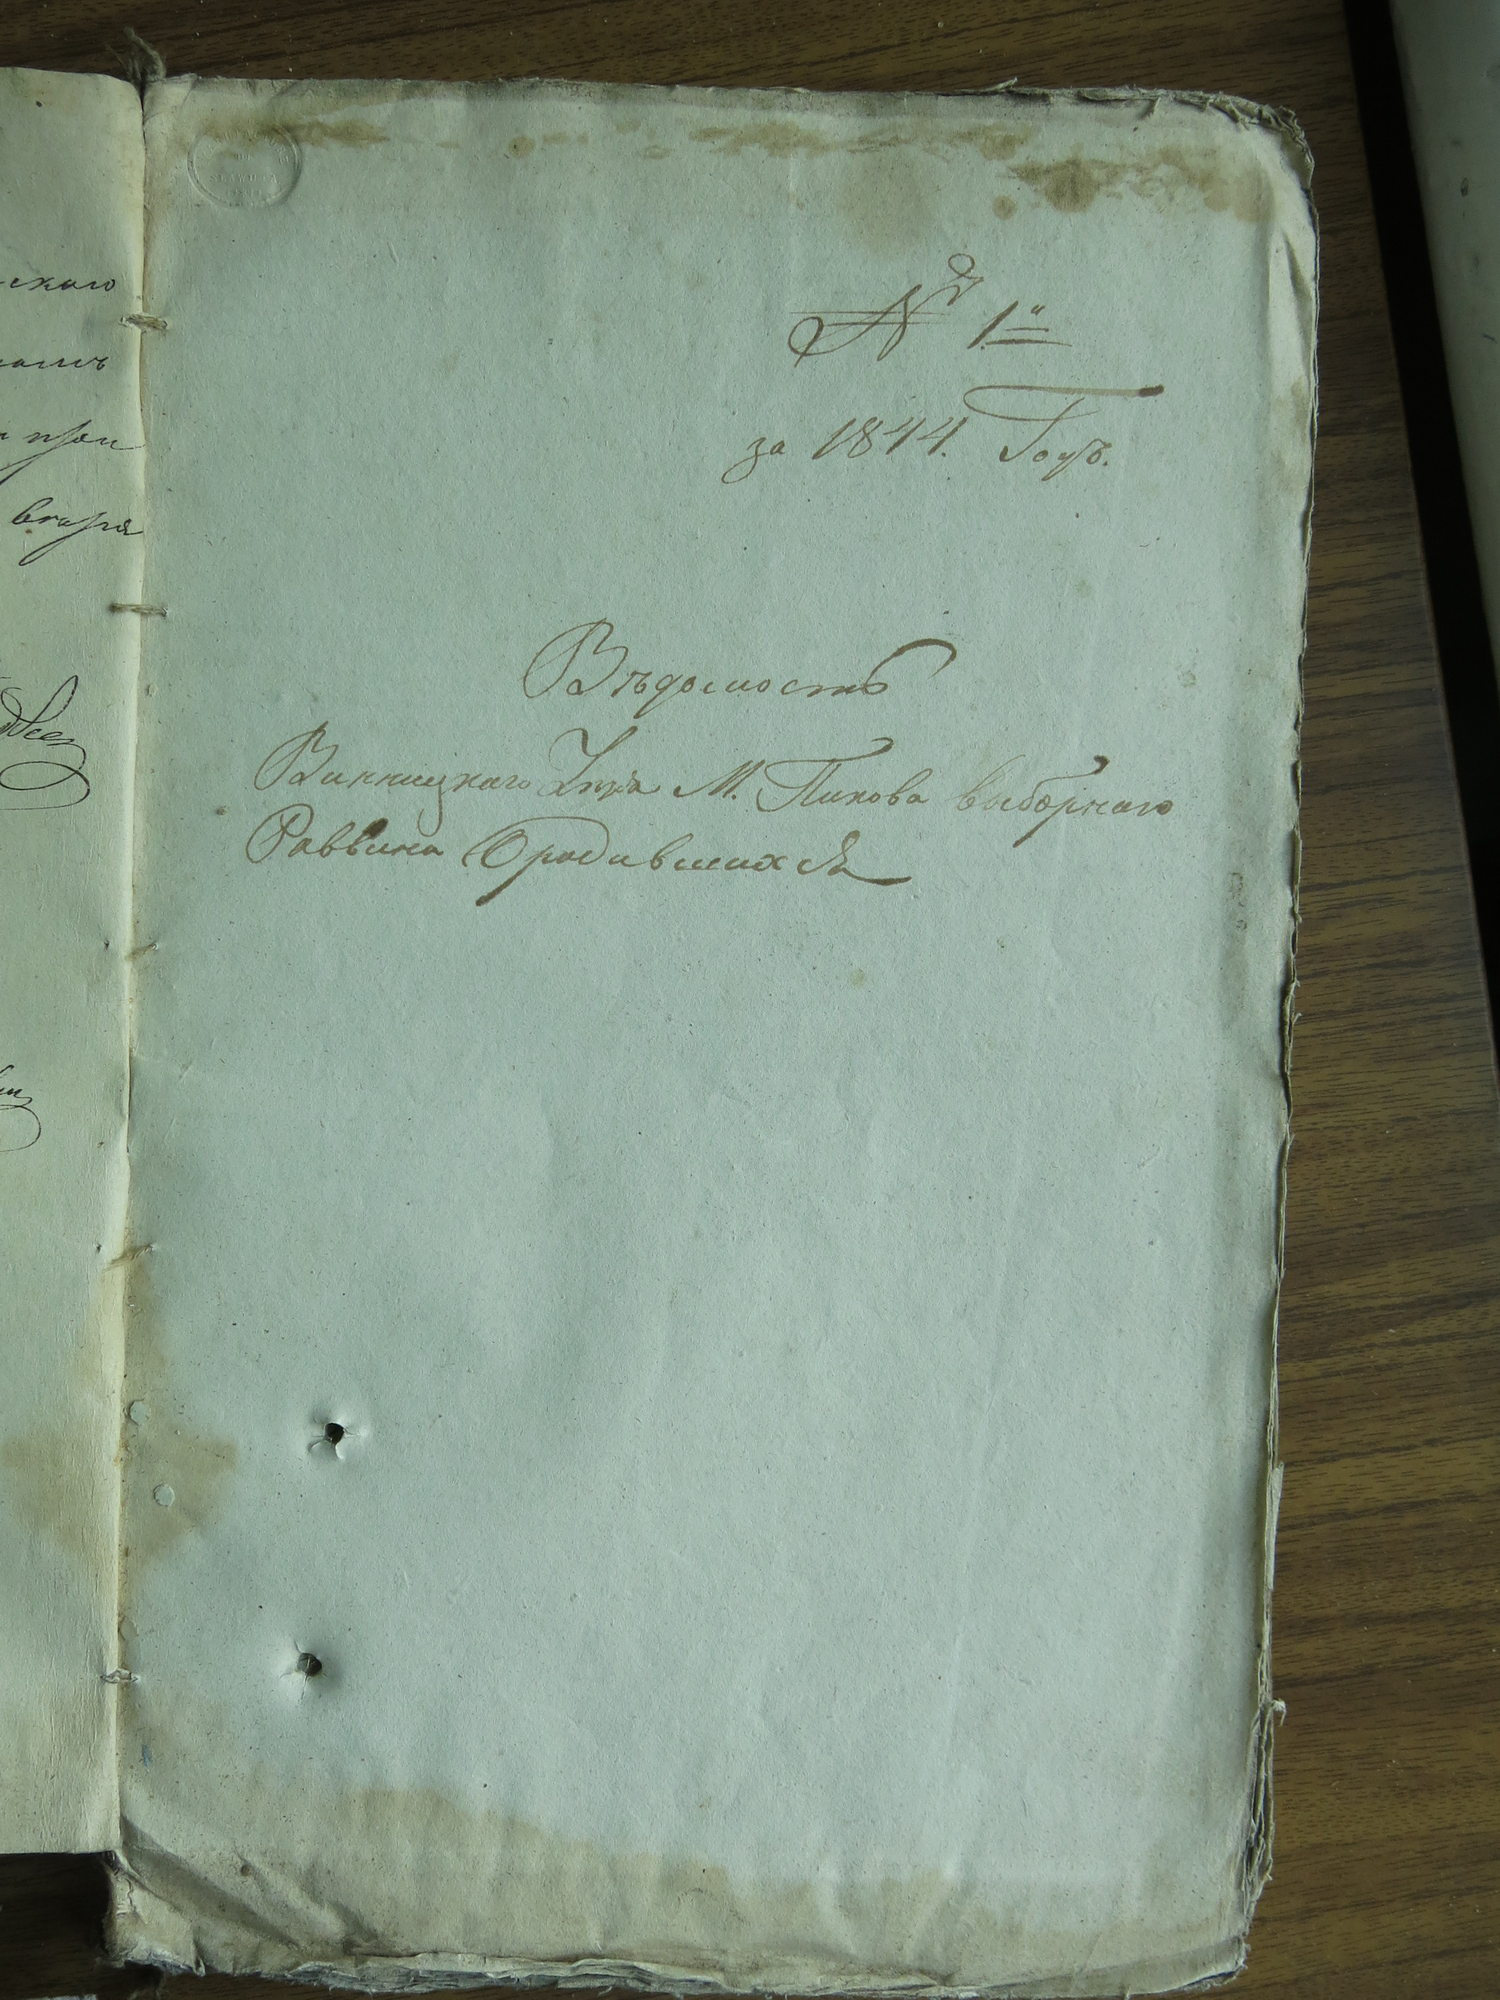 № 1й
за 1844. Годъ.
Вѣдомость
Винницкаго Уѣзда М. Пикова выборнаго
Раввина О родившихся
скаго
вторя